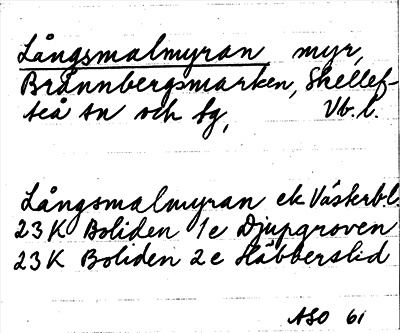 Långsmalmyran myr,
Brännbergsmarken, Skellef-
teå sn och lg, Vb. l.
Långsmalmyran ek Västerbl.
23 K Boliden 1e Djupgroven
23 K Boliden 2e Häbberslid
ASO 61